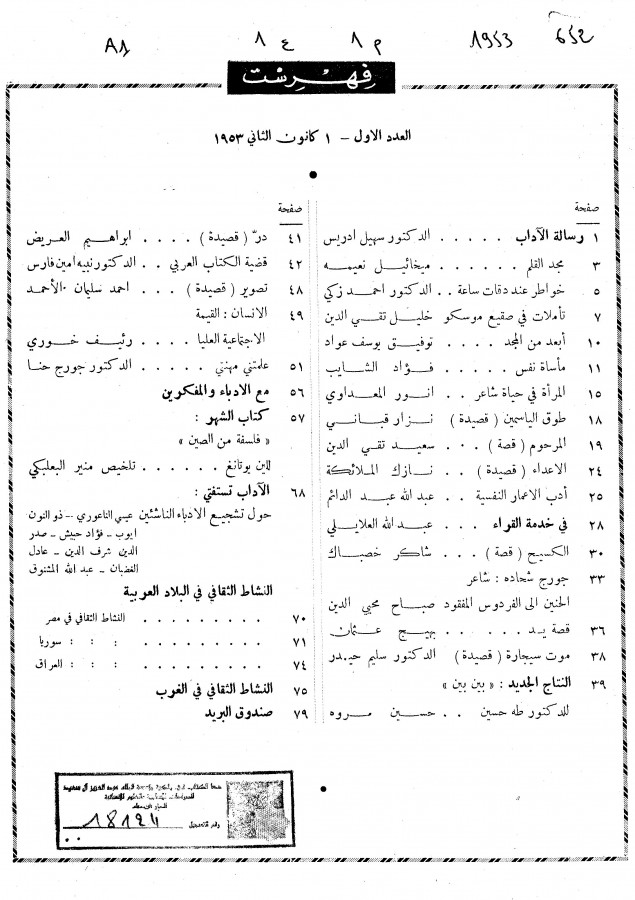 A1 ١ ع ١ م 1953 652
فهرست
العدد الاول – ١ كانون الثاني ١٩٥٣
صفحة
١ رسالة الآداب . . . . . الدكتور سهيل ادريس
٣ مجد القلم . . . . . . ميخائيل نعيمه
٥ خواطر عند دقات ساعة . . الدكتور احمد زكي
٧ تأملات في صقيع موسكو خليل تقي الدين
١٠ أبعد من المجد . . . . توفيق يوسف عواد
١١ مأساة نفس . . . . . فؤاد الشايب
١٥ المرأة في حياة شاعر . . انور المعداوي
١٨ طوق الياسمين ( قصيدة ) نزار قباني
١٩ المرحوم ( قصة ) . . . سعيد تقي الدين
٢٤ الاعداء ( قصيدة ) . . نازك الملائكة
٢٥ أدب الاعمار النفسية . . عبد الله عبد الدائم
٢٨ في خدمة القراء . . . عبد الله العلايلي
٣٠ الكسيح ( قصة ) . . . شاكر خصباك
٣٣ جورج شحاده : شاعر
الحنين الى الفردوس المفقود صباح محيي الدين
٣٦ قصة يد . . . . . . بهيج عثمان
٣٨ موت سيجارة ( قصيدة ) الدكتور سليم حيدر
٣٩ النتاج الجديد : « بين بين »
للدكتور طه حسين . . حسين مروه
صفحة
٤١ درّ ( قصيدة ) . . . . ابراهيم العريض
٤٢ قضية الكتاب العربي . . الدكتور نبيه امين فارس
٤٨ تصوير ( قصيدة ) . . . احمد سليمان الأحمد
٤٩ الانسان : القيمة
الاجتماعية العليا . . . . رئيف خوري
٥١ علمتني مهنتي . . . . . الدكتور جورج حنا
٥٦ مع الادباء والمفكرين
٥٧ كتاب الشهر :
« فلسفة من الصين »
للين يوتانغ . . . . . . تلخيص منير البعلبكي
٦٨ الآداب تستفتي :
حول تشجيع الادباء الناشئين عيسى الناعوري – ذو النون
ايوب – فؤاد حبيش – صدر
الدين شرف الدين – عادل
الغضبان – عبد الله المشنوق
النشاط الثقافي في البلاد العربية
٧٠ . . . . . . . . . النشاط الثقافي في مصر
٧١ . . . . . . . . . : : : سوريا
٧٤ . . . . . . . . . : : : العراق
٧٥ النشاط الثقافي في الغرب
٧٩ صندوق البريد
رقم التسجيل 18124